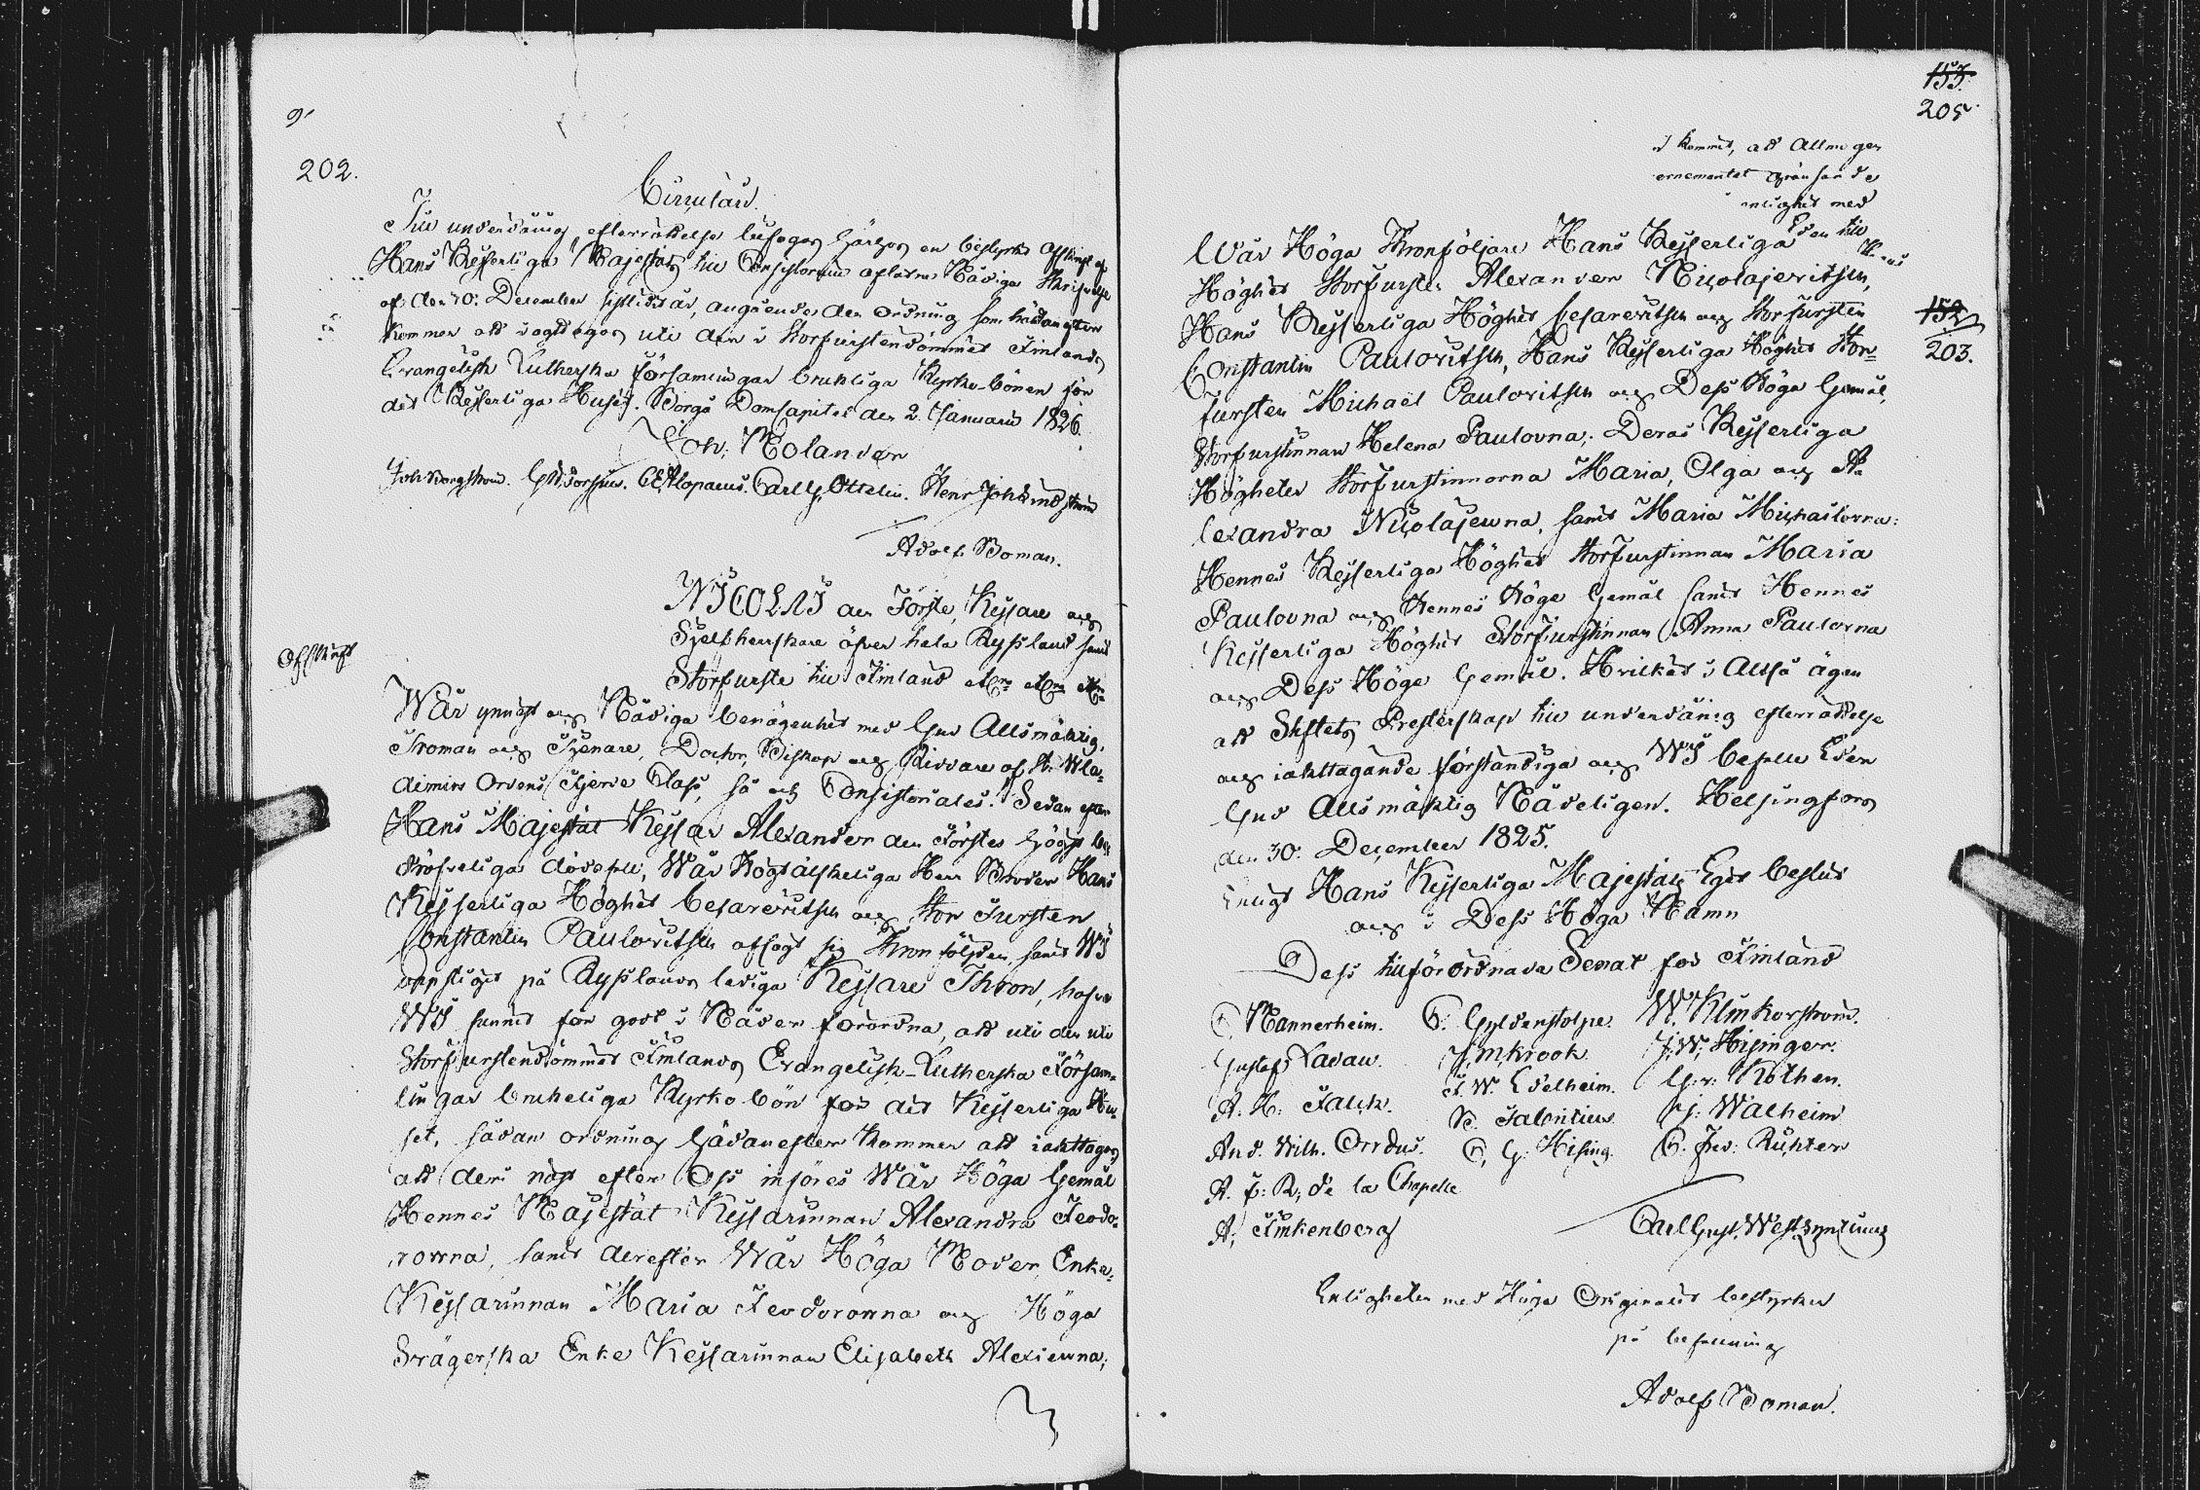 202.
Circulair.
Till underdånig efterrättelse bifogas härhos en bestyrkt Afskrift af
Hans Kejserliga Majestäts till Consistorium aflåtna Nådiga Skrifvelse
af den 30: December sistledit år, angående den ordning som hädanefter
kommer att i agttagas uti den i Storfurstendömmet Finlands
Evangelisk Lutherska församlingar brukliga Kyrko-bönen för
det Kejserliga Huset. Borgå Domcapitel den 2. Januarii 1826.
Joh: Molander
Joh. Borgström. Alopaeus. Carl G. Ottelin. Henr. Joh.
Adolf Boman.
Afskrift
NICOLAI den Förste, Kejsare och
Sjelfherrskare öfver hela Ryssland samt
Storfurste till Finland etc: etc: etc:
Wår ynnest och Nådiga benägenhet med Gud Allsmäktig,
Troman och Tjenare, Doctor, Biskop och Riddare af St. Wla-
dimirs Ordens fjerde Class, så och Consistoriales. Sedan efter
Hans Majestät Kejsar Alexander den Förstes högst be-
dröfveliga dödsfall, Wår Högtälskelige Herr Broder Hans
Kejserliga Höghet Cesarevitsch och Stor Fursten
Constantin Paulovitsch afsagt sig Thronföljden, samt WI
uppstigit på Rysslands lediga Kejsare Thron, hafve
WI funnit för godt i Nåder förordna, att uti den uti
Storfurstendömmet Finlands Evangelisk-Lutherska Försam-
lingar brukeliga Kyrkobön för det Kejserliga Hu-
set, sådan ordning hädanefter kommer att iakttagas
att deri näst efter Oss införes Wår Höga Gemål
Hennes Majestät Kejsarinnan Alexandra Feodo-
rowna, samt derefter Wår Höga Moder, Enke-
Kejsarinnan Maria Feodorowna och Höga
Svägerska Enke Kejsarinnan Elisabeth Alexiewna;
153.
205
kommit, att Allmogen
gränsande
enlighet med
Eder till
Wår Höga Thronföljare Hans Kejserliga
Höghet Storfursten Alexander Nicolajevitsch,
Hans Kejserliga Höghet Cesarevitsch och Storfursten
Constantin Paulovitsch, Hans Kejserliga Höghet Stor-
fursten Michaël Paulovitsch och Dess Höga Gemål,
Storfurstinnan Helena Paulovna; Deras Kejserliga
Högheter Storfurstinnorna Maria, Olga och A-
lexandra Nicolajewna, samt Maria Michailovna:
Hennes Kejserliga Höghet Storfurstinnan Maria
Paulovna och Hennes Höge Gemål samt Hennes
Kejserliga Höghet Storfurstinnan Anna Paulovna
och Dess Höge Gemål. Hvilket i Altså ägen
att Stiftets Presterskap till underdånig efterrättelse
och iakttagande förständiga och WI befalle Eder
Gud Allsmäktig Nådeligen. Helsingfors
den 30: December 1825.
Enligt Hans Kejserliga Majestäts Eget beslut
och i Dess Höga Namn
Dess tillförordnade Senat för Finland
152
203.
C. Mannerheim. C. Gyldenstolpe. W. Klinkowström.
Gustaf Ladau. J. M. Krook. J. W. Hisinger.
A. H. Falck. F. W. Edelheim. G. v: Kothen.
N. Idalentius. C. J: Walheim
And. Wilh. Orrdus. C. G. Hising. C. Fred: Richter
A. F: R; de la Chapelle
A; Finkenberg
Carl Gust. Westzynthius
Enligheten med Höga Originalet bestyrker
på befallning
Adolf Boman.